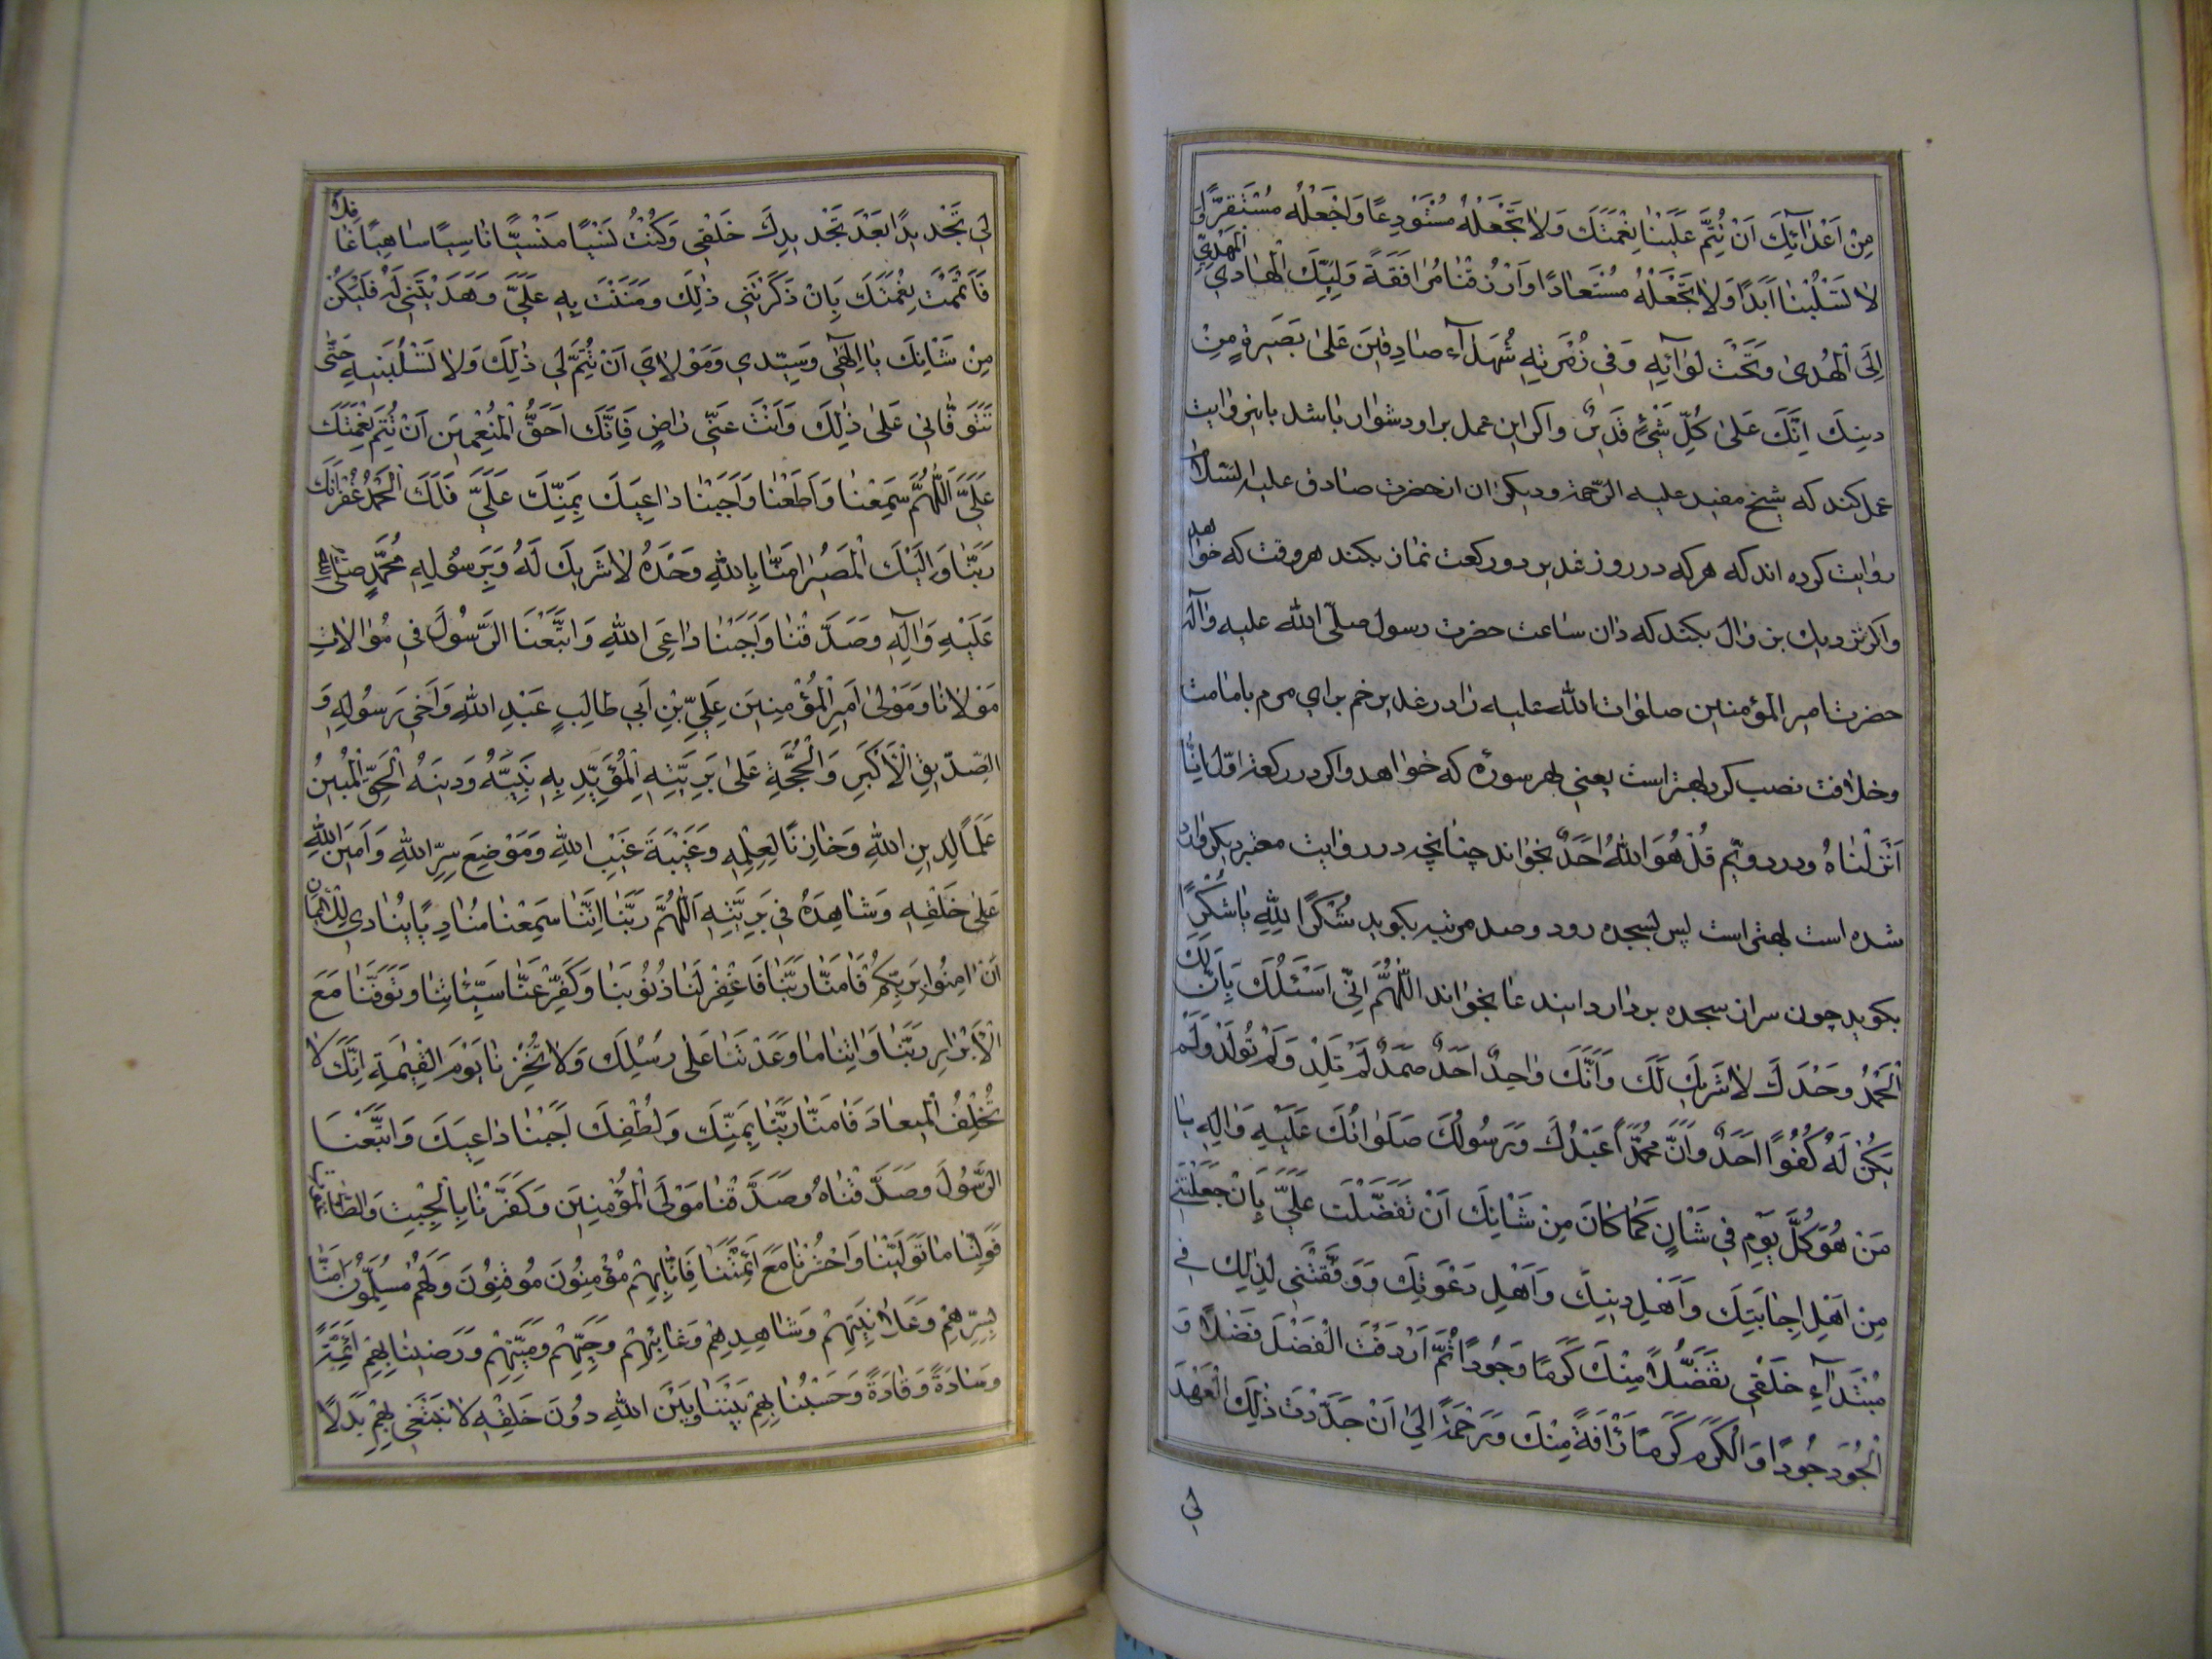 مِنْ اَعْدٰآئِكَ اَنْ تُتِمَّ عَلَيْنٰا نِعْمَتَكَ وَلاٰ تَجْعَلْهُ مُسْتَوْدِعًا وَاجْعَلْهُ مُسْتَقِرًّا وَ
لاٰ تَسْلُبْنٰا اَبَدًا وَلاٰ تَجْعَلْهُ مُسْتَعٰادًا وَارْزُقْنٰا مُرٰافَقَةَ وَلِيِّكَ الْهٰادِي الْمَهْدِيِّ
اِلَى الْهُدىٰ وَتَحْتَ لِوٰآئِهِ وَفي زُمْرَتِهِ شُهَدٰآءَ صٰادِقينَ عَلىٰ بَصيرَةٍ مِنْ
دينِكَ اِنَّكَ عَلىٰ كُلِّ شَيْءٍ قَديرٌ واكر اين عمل بر او دشوار باشد باين روايت
عمل كند كه شيخ مفيد عليه الرّحمة وديكران از حضرت صادق عليه السّلام
روايت كرده اند كه هر كه در روز غدير دو ركعت نماز بكند هر وقت كه خواهد
واكر نزديك بزوال بكند كه دران ساعت حضرت رسول صلّى الله عليه وآله
حضرت امير المؤمنين صلوات الله عليه را در غدير خم براي مردم بامامت
وخلافت نصب كرد بهتر است يعني هر سوره كه خواهد واكر در ركعت اوّل اِنّٰا
اَنْزَلْنٰاهُ ودر دويّم قُلْ هُوَ اللهُ اَحَدٌ بخواند چنانچه در روايت معتبر ديكر وارد
شده است بهتر است پس بسجده رود وصد مرتبه بكويد شُكْرًا لِلّٰهِ يا شُكْرًا
بكويد چون سر از سجده بردارد اين دعا بخواند اَللّٰهُمَّ اِنّي اَسْئَلُكَ بِاَنَّ لَكَ
الْحَمْدُ وَحْدَكَ لاٰ شَريكَ لَكَ وَاَنَّكَ وٰاحِدٌ اَحَدٌ صَمَدٌ لَمْ تَلِدْ وَلَمْ تُولَدْ وَلَمْ
يَكُنْ لَهُ كُفُوًا اَحَدٌ وَاَنَّ مُحَمَّدًا عَبْدُكَ وَرَسُولُكَ صَلَوٰاتُكَ عَلَيْهِ وَاٰلِهِ يٰا
مَنْ هُوَ كُلَّ يَوْمٍ في شَاْنٍ كَمٰا كٰانَ مِنْ شَاْنِكَ اَنْ تَفَضَّلْتَ عَلَيَّ بِاَنْ جَعَلْتَني
مِنْ اَهْلِ اِجٰابَتِكَ وَاَهْلِ دينِكَ وَاَهْلِ دَعْوَتِكَ وَوَفَّقْتَني لِذٰلِكَ في
مُبْتَدَآءِ خَلْقي تَفَضُّلاً مِنْكَ كَرَمًا وَجُودًا ثُمَّ اَرْدَفْتَ الْفَضْلَ فَضْلاً وَ
الْجُودَ جُودًا وَالْكَرَمَ كَرَمًا رَاْفَةً مِنْكَ وَرَحْمَةً اِلىٰ اَنْ جَدَّدْتَ ذٰلِكَ الْعَهْدَ
لي
لي تَجْديدًا بَعْدَ تَجْديدِكَ خَلْقي وَكُنْتُ نَسْيًا مَنْسِيًّا نٰاسِيًا سٰاهِيًا غٰافِلاً
فَاَتْمَمْتَ نِعْمَتَكَ بِاَنْ ذَكَّرْتَني ذٰلِكَ وَمَنَنْتَ بِهِ عَلَيَّ وَهَدَيْتَني لَهُ فَلْيَكُنْ
مِنْ شَاْنِكَ يٰا اِلٰهي وَسَيِّدي وَمَوْلاٰيَ اَنْ تُتِمَّ لي ذٰلِكَ وَلاٰ تَسْلُبْنيهِ حَتّٰى
تَتَوَفّٰاني عَلىٰ ذٰلِكَ وَاَنْتَ عَنّي رٰاضٍ فَاِنَّكَ اَحَقُّ الْمُنْعِمينَ اَنْ تُتِمَّ نِعْمَتَكَ
عَلَيَّ اَللّٰهُمَّ سَمِعْنٰا وَاَطَعْنٰا وَاَجَبْنٰا دٰاعِيَكَ بِمَنِّكَ عَلَيَّ فَلَكَ الْحَمْدُ غُفْرٰانَكَ
رَبَّنٰا وَاِلَيْكَ الْمَصيرُ اٰمَنّٰا بِاللهِ وَحْدَهُ لاٰ شَريكَ لَهُ وَبِرَسُولِهِ مُحَمَّدٍ صَلَّى اللهُ
عَلَيْهِ وَاٰلِهِ وَصَدَّقْنٰا وَاَجَبْنٰا دٰاعِيَ اللهِ وَاتَّبَعْنَا الرَّسُولَ في مُوٰالاٰتِ
مَوْلاٰنٰا وَمَوْلىٰ اَميرِ الْمُؤْمِنينَ عَلِيِّ بْنِ اَبي طٰالِبٍ عَبْدِ اللهِ وَاَخي رَسُولِهِ وَ
الصِّدّيقِ الْاَكْبَرِ وَالْحُجَّةِ عَلىٰ بَرِيَّتِهِ الْمُؤَيِّدِ بِهِ نَبِيَّهُ وَدينَهُ الْحَقَّ الْمُبينَ
عَلَمًا لِدينِ اللهِ وَخٰازِنًا لِعِلْمِهِ وَعَيْبَةَ غَيْبِ اللهِ وَمَوْضِعَ سِرِّ اللهِ وَاَمينَ اللهِ
عَلىٰ خَلْقِهِ وَشٰاهِدَهُ في بَرِيَّتِهِ اَللّٰهُمَّ رَبَّنٰا اِنَّنٰا سَمِعْنٰا مُنٰادِيًا يُنٰادي لِلْايمٰانِ
اَنْ اٰمِنُوا بِرَبِّكُمْ فَاٰمَنّٰا رَبَّنٰا فَاغْفِرْ لَنٰا ذُنُوبَنٰا وَكَفِّرْ عَنّٰا سَيِّئٰاتِنٰا وَتَوَفَّنٰا مَعَ
الْاَبْرٰارِ رَبَّنٰا وَاٰتِنٰا مٰا وَعَدْتَنٰا عَلىٰ رُسُلِكَ وَلاٰ تُخْزِنٰا يَوْمَ الْقِيٰمَةِ اِنَّكَ لاٰ
تُخْلِفُ الْميعٰادَ فَاٰمَنّٰا رَبَّنٰا بِمَنِّكَ وَلُطْفِكَ اَجَبْنٰا دٰاعِيَكَ وَاتَّبَعْنَا
الرَّسُولَ وَصَدَّقْنٰاهُ وَصَدَّقْنٰا مَوْلَى الْمُؤْمِنينَ وَكَفَرْنٰا بِالْجِبْتِ وَالطّٰاغُوتِ
فَوَلِّنٰا مٰا تَوَلَّيْنٰا وَاحْشُرْنٰا مَعَ اَئِمَّتِنٰا فَاِنّٰا بِهِمْ مُؤْمِنُونَ مُوقِنُونَ وَلَهُمْ مُسَلِّمُونَ اٰمَنّٰا
بِسِرِّهِمْ وَعَلاٰنِيَتِهِمْ وَشٰاهِدِهِمْ وَغٰائِبِهِمْ وَحَيِّهِمْ وَمَيِّتِهِمْ وَرَضينٰا بِهِمْ اَئِمَّةً
وَسٰادَةً وَقٰادَةً وَحَسْبُنٰا بِهِمْ بَيْنَنٰا وَبَيْنَ اللهِ دُونَ خَلْقِهِ لاٰ نَبْتَغي بِهِمْ بَدَلاً